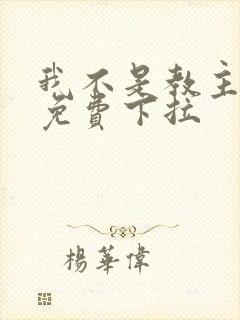 我不是教主
免費下拉
楊華偉